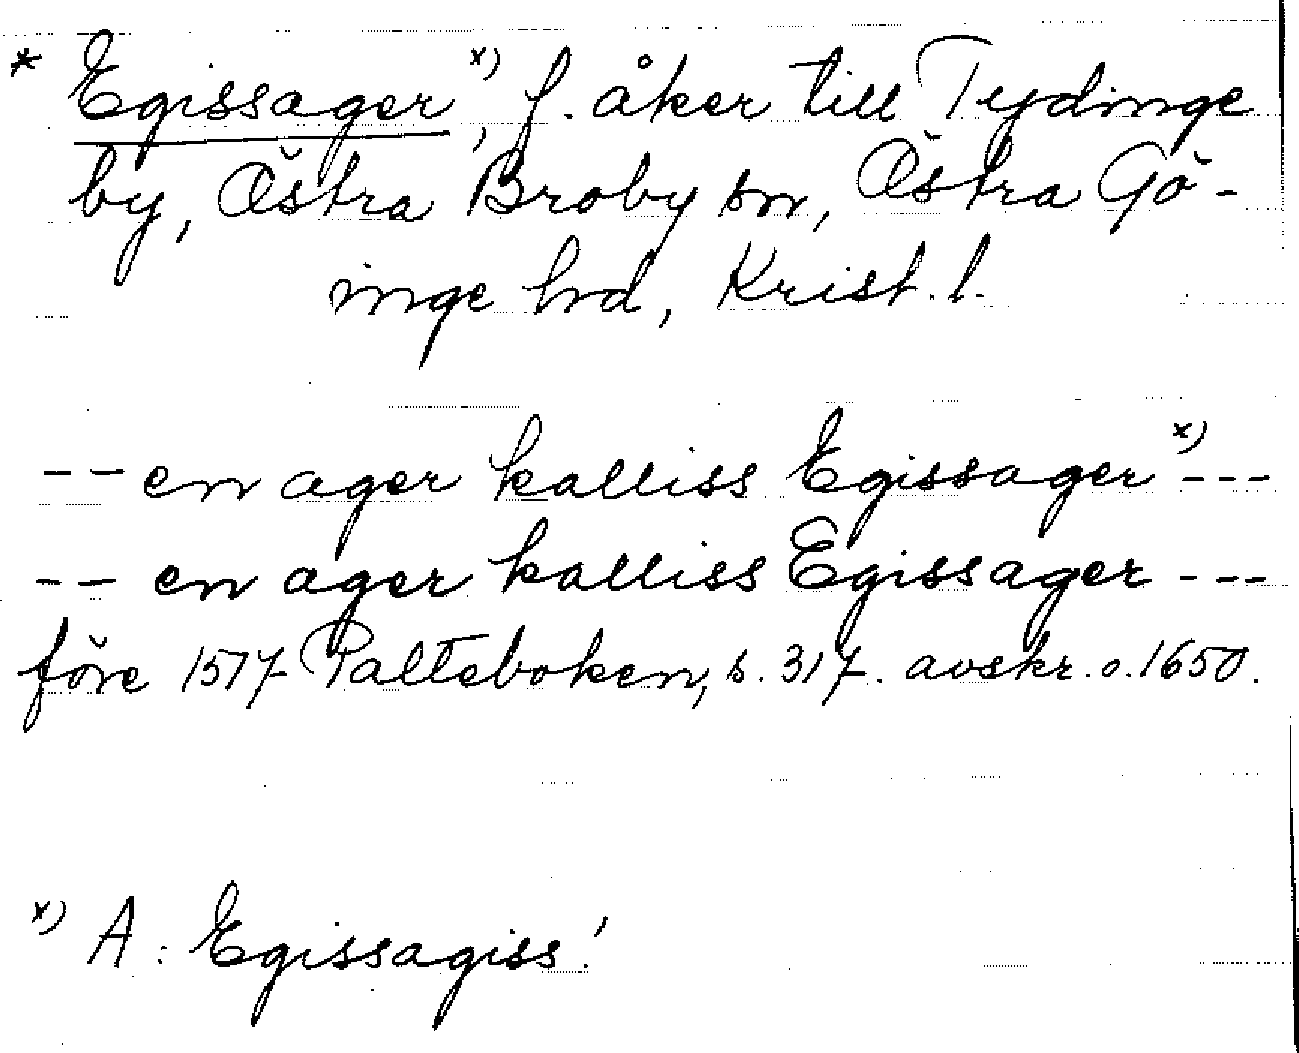 * Egissager x), f. åker till Tydinge
by, Östra Broby sn, Östra Gö-
inge hd, Krist. l.
-- en ager kalliss Egissager x) ---
-- en ager kalliss Egissager ---
före 1517 Palteboken, s. 317. avskr. o. 1650.
x) A: Egissagiss!